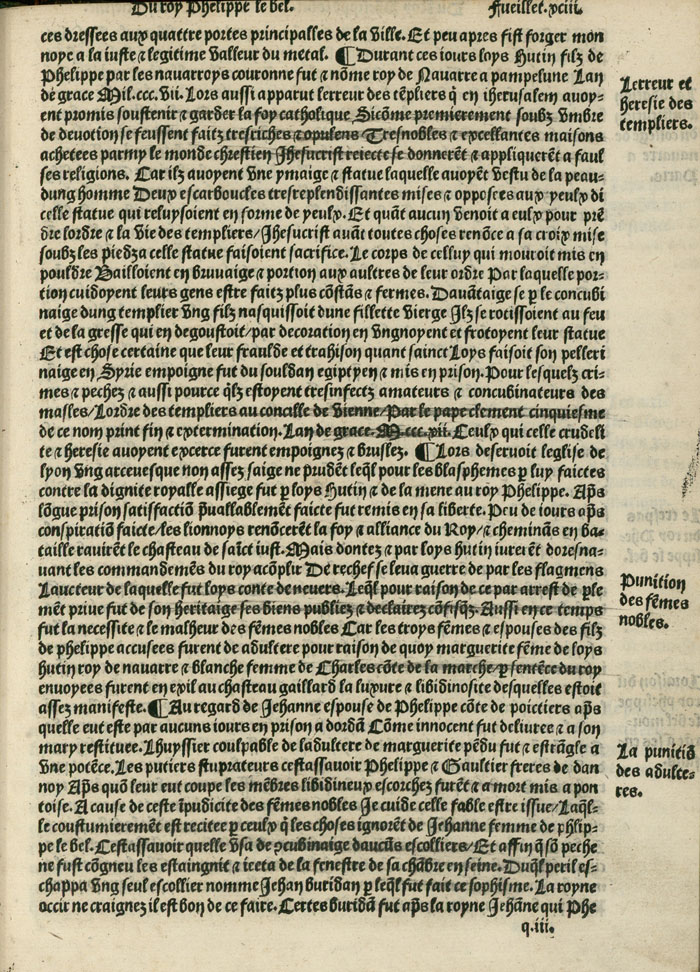 Du roy Phelippe le bel.
Fueillet.xciii.
ces dressees aux quattre portes principalles de la Ville. Et peu apres fist forger mon
noye a la iuste ⁊ legitime valleur du metal. ¶ Durant ces iours loys Hutin filz de
Phelippe par les navarroys couronne fut ⁊ nõme roy de Navarre a pampelune Lan
de grace Mil.ccc.vii. Lors aussi apparut lerreur des tẽpliers q̃ en iherusalem avoy-
ent promis soustenir ⁊ garder la foy catholique Sicõme premierement soubz vmbre
de devotion se feussent faitz tresriches ⁊ opulens Tresnobles ⁊ excellantes maisons
achetees parmy le monde chrestien Jhesucrist reiecte se donnerẽt ⁊ appliquerẽt a faul
ses religions. Car ilz avoyent vne ymaige ⁊ statue laquelle avoyẽt vestu de la peau-
dung homme Deux escarboucles tresreplendissantes mises ⁊ opposees aux yeulx di
celle statue qui reluysoient en forme de yeulx. Et quãt aucun venoit a eulx pour prẽ
dre lordre ⁊ la vie des templiers/Jhesucrist avãt toutes choses renõce a sa croix mise
soubz les piedz a celle statue faisoient sacrifice. Le corps de celluy qui mouroit mis en
pouldre Bailloient en bruvaige ⁊ portion aux aultres de leur ordre Par laquelle por-
tion cuidoyent leurs gens estre faitz plus cõstãs ⁊ fermes. Davãtaige se p̱ le concubi
naige dung templier vng filz nasquissoit dune fillette vierge Ilz se rotissoient au feu
et de la gresse qui en degoustoit/par decoration en vngnoyent ⁊ frotoyent leur statue
Et est chose certaine que leur fraulde et trahison quant sainct Loys faisoit son pelleri
naige en Syrie empoigne fut du souldan egiptyen ⁊ mis en prison. Pour lesquelz cri-
mes ⁊ pechez ⁊ aussi pource q̃lz estoyent tresinfectz amateurs ⁊ concubinateurs des
masles/Lordre des templiers au concille de vienne/Par le pape clement cinquiesme
de ce nom print fin ⁊ extermination. Lan de grace.M.ccc.xii. Ceulx qui celle crudeli
te ⁊ heresie avoyent exerce furent empoignez ⁊ bruslez. ¶ Lors deservoit leglise de
lyon vng arcevesque non assez saige ne prudẽt leq̃l pour les blasphemes p̱ luy faictes
contre la dignite royalle assiege fut p̱ loys Hutin ⁊ de la mene au roy Phelippe. Ap̃s
lõgue prison satisfactiõ p̃uallablemẽt faicte fut remis en sa liberte. Peu de iours ap̃s
conspiratiõ faicte/les lionnoys renõcerẽt la foy ⁊ alliance du Roy/⁊ cheminãs en ba-
taille ravirẽt le chasteau de saĩct iust. Mais dontez ⁊ par loys hutin iurerẽt doresna-
vant les commandemẽs du roy acõplir De rechef se leva guerre de par les flagmens
Laucteur de laquelle fut loys conte de nevers. Leq̃l pour raison de ce par arrest de p̱le
mẽt prive fut de son heritaige ses biens publiez ⁊ declairez cõfisq̃z. Aussi en ce temps
fut la necessite ⁊ le malheur des fẽmes nobles Car les troys fẽmes ⁊ espouses des filz
de phelippe accusees furent de adultere pour raison de quoy marguerite fẽme de loys
hutin roy de navarre ⁊ blanche femme de Charles cõte de la marche/p̱ sentẽce du roy
envoyees furent en exil au chasteau gaillard la luxure ⁊ libidinosite desquelles estoit
assez manifeste. ¶ Au regard de Jehanne espouse de Phelippe cõte de poictiers ap̃s
quelle eut este par aucuns iours en prison a dordã Cõme innocent fut delivree ⁊ a son
mary restituee. Lhuyssier coulpable de ladultere de marguerite pẽdu fut ⁊ estrãgle a
vne potẽce. Les putiers stuprateurs cestassavoir Phelippe ⁊ Gaultier freres de dan
noy Ap̃s quõ leur eut coupe les mẽbres libidineux escorchez furẽt ⁊ a mort mis a pon
toise. A cause de ceste ĩpudicite des fẽmes nobles Je cuide celle fable estre issue/Laq̃l-
le coustumieremẽt est recitee p̱ ceulx q̃ les choses ignorẽt de Jehanne femme de phlip-
pe le bel. Cestassavoir quelle vsa de ɔcubinaige daucũs escolliers/Et affin q̃ sõ peche
ne fust cõgneu les estaingnit ⁊ iceta de la fenestre de sa chãbre en seine. Duq̃l peril es-
chappa vng seul escollier nomme Jehan buridan p̱ leq̃l fut fait ce sophisme. La royne
occir ne craignez il est bon de ce faire. Certes buridã fut ap̃s la royne Jehãne qui Phe
q.iii.
Lerreur et
heresie des
templiers.
Punition
des fẽmes
nobles.
La punitiõ
des adulte-
res.